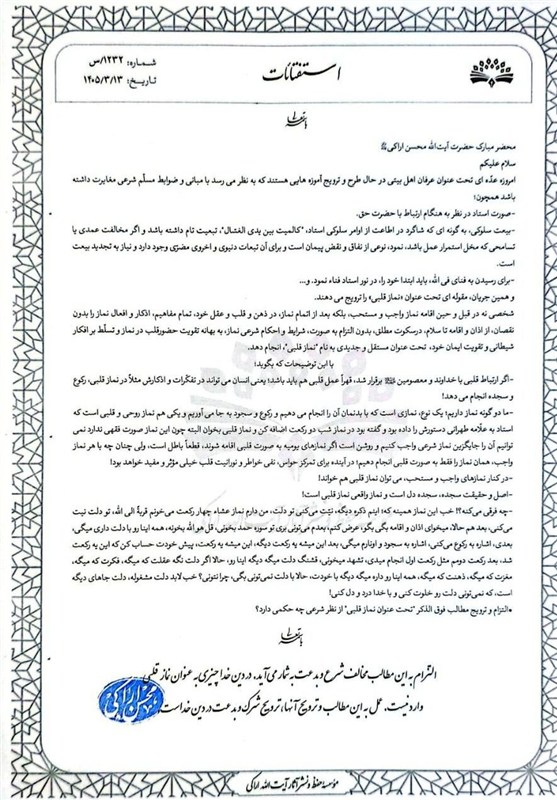 استفتائات
شماره: ۱۲۳۲/س
تاریخ: ۱۴۰۵/۳/۱۳
بسمه تعالی
محضر مبارک حضرت آیت‌الله محسن اراکی
سلام علیکم
امروزه عدّه ای تحت عنوان عرفان اهل بیتی در حال طرح و ترویج آموزه هایی هستند که به نظر می رسد با مبانی و ضوابط مسلّم شرعی مغایرت داشته
باشد همچون؛
-صورت استاد در نظر به هنگام ارتباط با حضرت حق.
-بیعت سلوکی، به گونه ای که شاگرد در اطاعت از اوامر سلوکی استاد، "کالمیت بین یدی الغسّال"، تبعیت تام داشته باشد و اگر مخالفت عمدی یا
تسامحی که مخل استمرار عمل باشد، نمود، نوعی از نفاق و نقض پیمان است و برای آن تبعات دنیوی و اخروی مضرّی وجود دارد و نیاز به تجدید بیعت
است.
-برای رسیدن به فنای فی الله، باید ابتدا خود را، در نور استاد فناء نمود. و...
و همین جریان، مقوله ای تحت عنوان «نماز قلبی» را ترویج می دهند.
شخصی نه در قبل و حین اقامه نماز واجب و مستحب، بلکه بعد از اتمام نماز، در ذهن و قلب و عقل خود، تمام مفاهیم، اذکار و افعال نماز را بدون
نقصان، از اذان و اقامه تا سلام، درسکوت مطلق، بدون التزام به صورت، شرایط و احکام شرعی نماز، به بهانه تقویت حضورقلب در نماز و تسلّط بر افکار
شیطانی و تقویت ایمان خود، تحت عنوان مستقل و جدیدی به نام "نماز قلبی"، انجام دهد.
با این توضیحات که بگوید؛
-اگر ارتباط قلبی با خداوند و معصومین برقرار شد، قهراً عمل قلبی هم باید باشد؛ یعنی انسان می تواند در تفکّرات و اذکارش مثلاً در نماز قلبی، رکوع
و سجده انجام می دهد!
-ما دو گونه نماز داریم؛ یک نوع، نمازی است که با بدنمان آن را انجام می دهیم و رکوع و سجود به جا می آوریم و یکی هم نماز روحی و قلبی است که
استاد به علامه طهرانی دستورش را داده بود و گفته بود در نماز شب دو رکعت اضافه کن و نماز قلبی بخوان البته چون این نماز صورت فقهی ندارد نمی
توانیم آن را جایگزین نماز شرعی واجب کنیم و روشن است اگر نمازهای یومیه به صورت قلبی اقامه شوند، قطعاً باطل است، ولی چنان چه با هر نماز
واجب، همان نماز را فقط به صورت قلبی انجام دهیم؛ در آینده برای تمرکز حواس، نفی خواطر و نورانیت قلب خیلی مؤثر و مفید خواهد بود!
-در کنار نمازهای واجب و مستحب، می توان نماز قلبی هم خواند!
-اصل و حقیقت سجده، سجده دل است و نماز واقعی نماز قلبی است!
-چه فرقی می‌کنه؟! خب این نماز همینه که؛ اینم ذکره دیگه، نیّت می‌کنی تو دلت، من دارم نماز عشاء چهار رکعت می‌خونم قربة الی الله، تو دلت نیت
می‌کنی، بعد هم حالا، میخوای اذان و اقامه بگی بگو، عرض کنم، بعدم می‌تونی بری تو سوره حمد بخونی، قل هوالله بخونه، همه اینا رو با دلت داری میگی،
بعدی، اشاره به رکوع می‌کنی، اشاره به سجود و اونارم میگی، بعد این میشه یه رکعت دیگه، این میشه یه رکعت، پیش خودت حساب کن که این یه رکعت
شد، بعد رکعت دومم مثل رکعت اول انجام میدی، تشهد میخونی، قشنگ دلت میگه دیگه اینا رو، حالا اگر دلت نگه عقلت که میگه، فکرت که میگه،
مغزت که میگه، ذهنت که میگه، همه اینا رو داره میگه دیگه با خودت، حالا با دلت نمی‌تونی بگی، چرا نتونی؟ خب لابد دلت مشغوله، دلت جاهای دیگه
است، که نمی‌تونی دلت رو خلوت کنی و با خدا درد و دل کنی!
•التزام و ترویج مطالب فوق الذکر "تحت عنوان نماز قلبی" از نظر شرعی چه حکمی دارد؟
بسمه تعالی
التزام به این مطالب مخالف شرع و بدعت به شمار می‌آید. در دین خدا چیزی به عنوان نماز قلبی
وارد نیست. عمل به این مطالب و ترویج آنها، ترویج شرک و بدعت در دین خداست.
محسن اراکی
مؤسسه حفظ و نشر آثار آیت الله اراکی